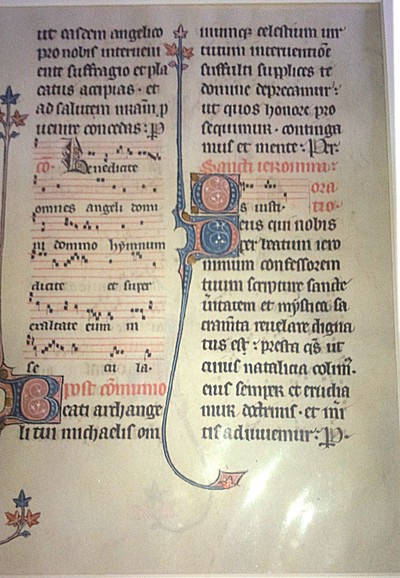 ut easdem angelico
pro nobis interveni
ente suffragio et pla
catus accipias · et
ad salutem nram p
venire concedas : P
co. Benedicite
omnes angeli domi
ni domino hymnum
dicite et super
exaltate eum in
se cu la
post comunio
Beati archange
li tui michaelis om
numq celestium vir
tutum intervention
suffulti supplices te
domine deprecamur :
ut quos honore pro
sequimur · continga
mus et mente : Per
Sancti ieronimi
Os iusti · ora
tio ·
Deus qui nobis
per beatum iero
nimum confessorem
tuum scripture sancte
veritatem et mystica sa
cramta revelare digna
tus es : presta qs ut
cuius natalicia colim
eius semper et erudia
mur doctrinis · et
tis adiuvemur : P